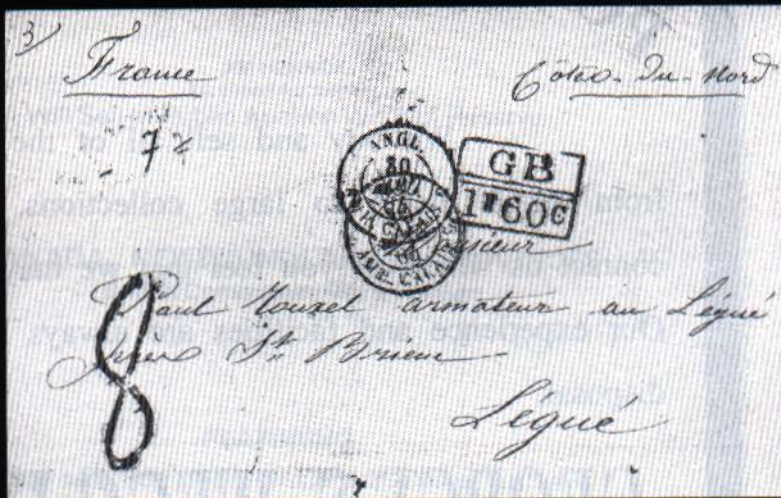 3/
France Côtes-du-Nord
7
ANGL.
GB
1F60c
AMB. CALAIS
Monsieur
Paul Rouxel armateur au Légué
près St Brieuc
Légué
8